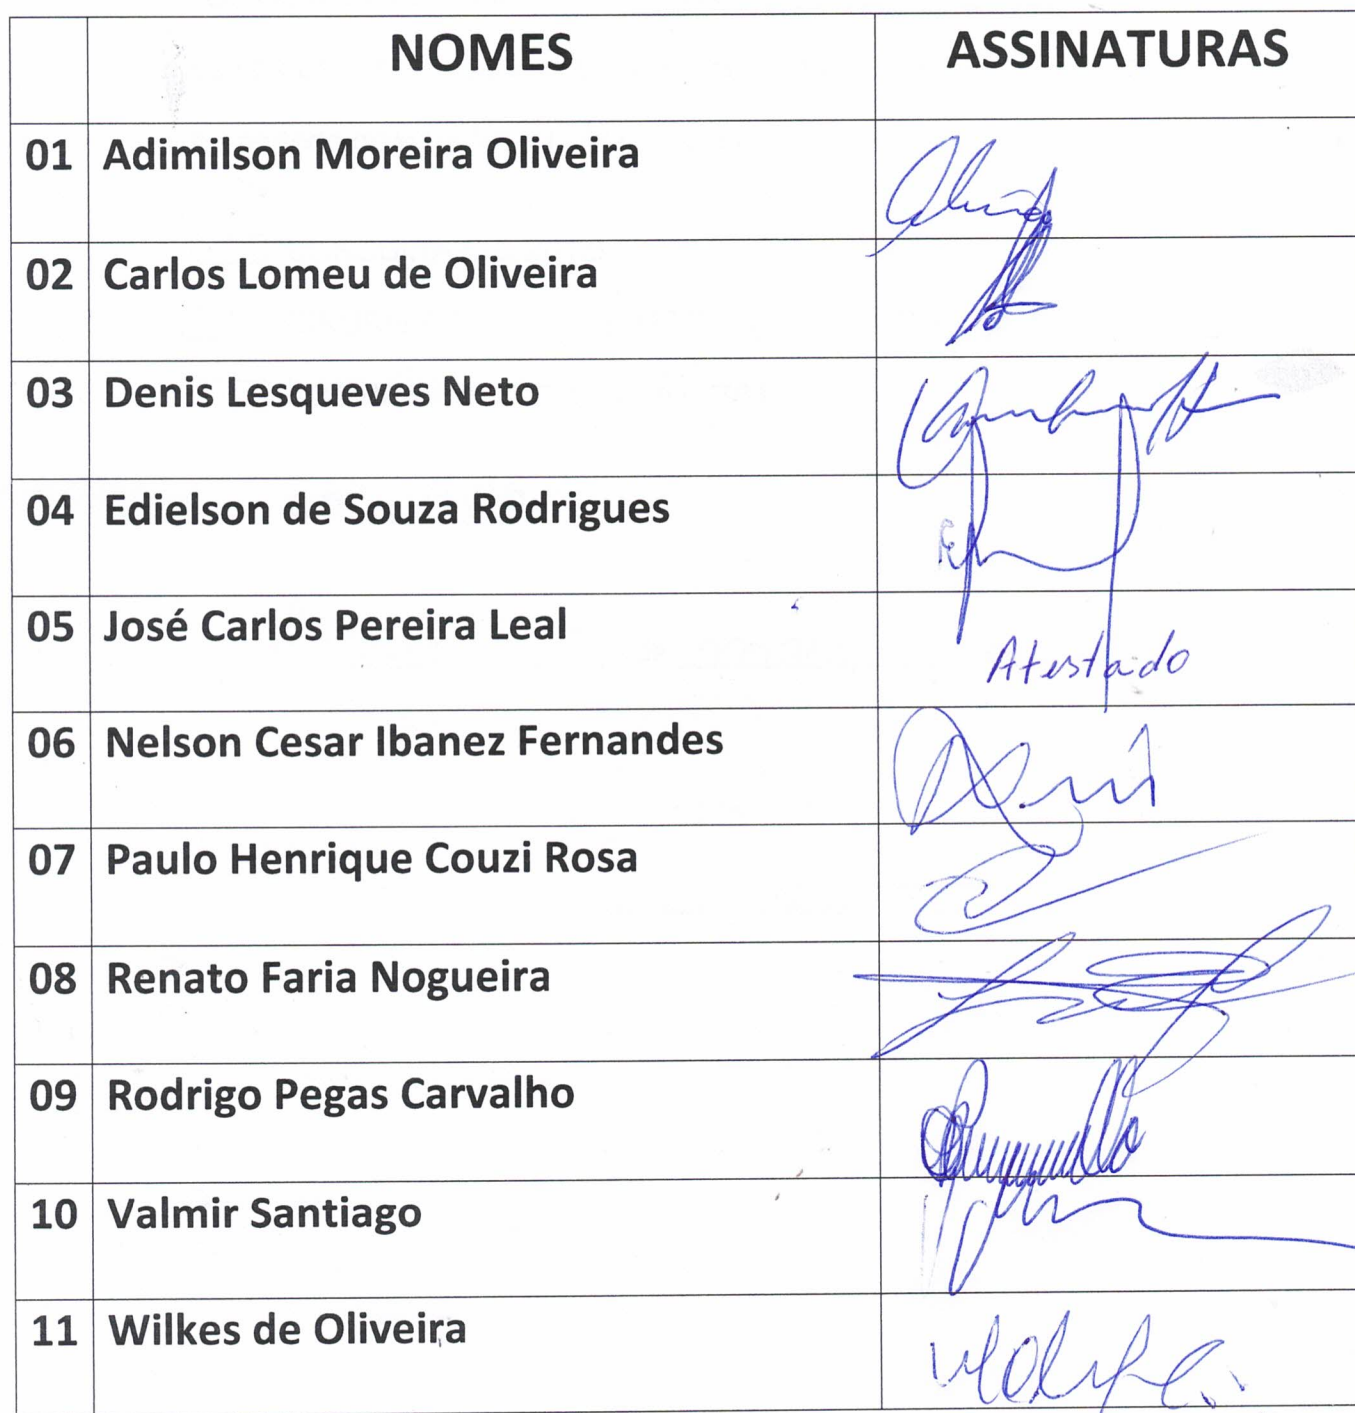 NOMES ASSINATURAS
01 Adimilson Moreira Oliveira
02 Carlos Lomeu de Oliveira
03 Denis Lesqueves Neto
04 Edielson de Souza Rodrigues
05 José Carlos Pereira Leal Atestado
06 Nelson Cesar Ibanez Fernandes
07 Paulo Henrique Couzi Rosa
08 Renato Faria Nogueira
09 Rodrigo Pegas Carvalho
10 Valmir Santiago
11 Wilkes de Oliveira